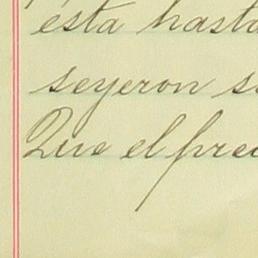 esta hasta
seyeron s
Que el prec